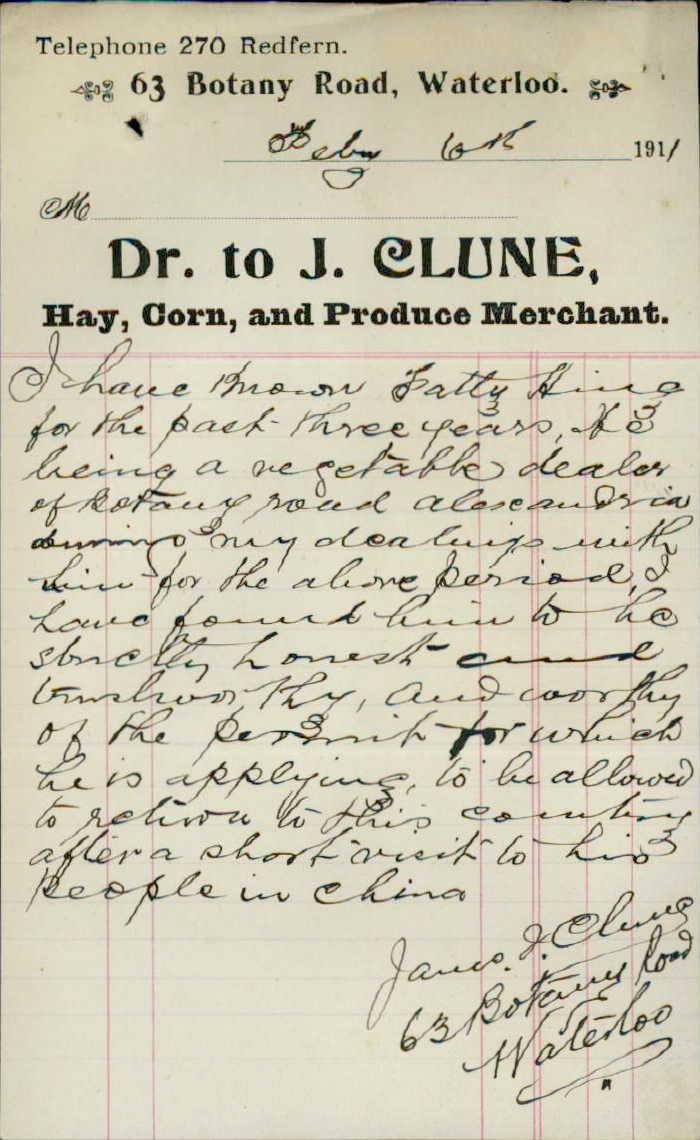 Telephone 270 Redfern.
63 Botany Road, Waterloo.
Feby 6th 1911
M
Dr. to J. CLUNE,
Hay, Corn, and Produce Merchant.
I have Known Fatty Hing
for the past three years, He
being a vegetable dealer
of Botany road alexandria
during my dealings with
him for the above period, I
have found him to be
strictly honest and
trustworthy, and worthy
of the permit for which
he is applying, to be allowed
to return to this country
after a short visit to his
people in China
James. J. Clune
63 Botany Road
Waterloo